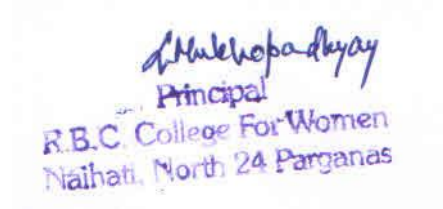 Mukhopadhyay
Principal
R.B.C. College For Women
Naihati, North 24 Parganas